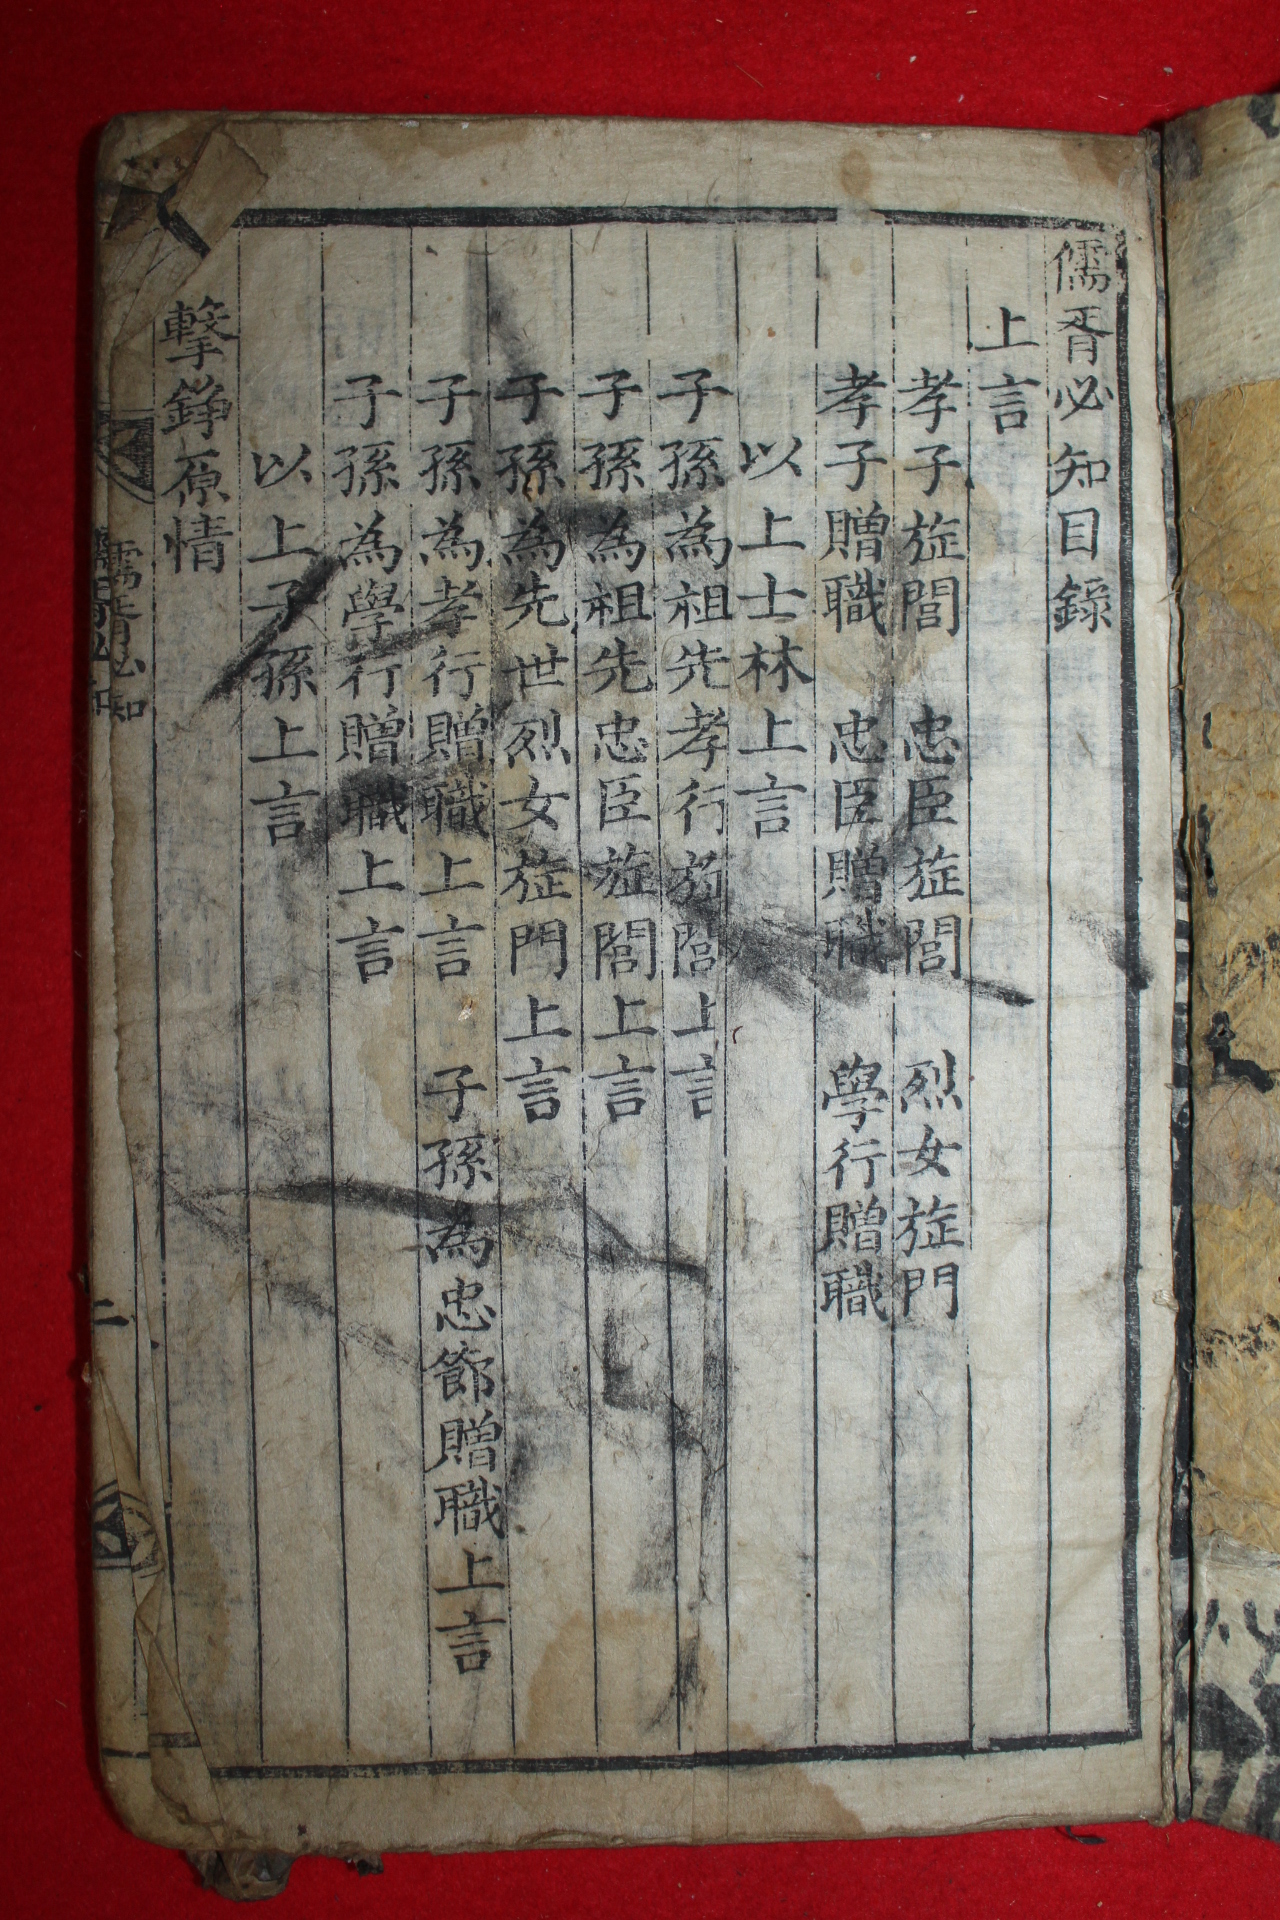 儒胥必知目錄
上言
孝子旌閭 忠臣旌閭 烈女旌門
孝子贈職 忠臣贈職 學行贈職
以上士林上言
子孫為祖先孝行旌閭上言
子孫為祖先忠臣旌閭上言
子孫為先世烈女旌門上言
子孫為孝行贈職上言 子孫為忠節贈職上言
子孫為學行贈職上言
以上子孫上言
擊錚原情
儒胥必知
二